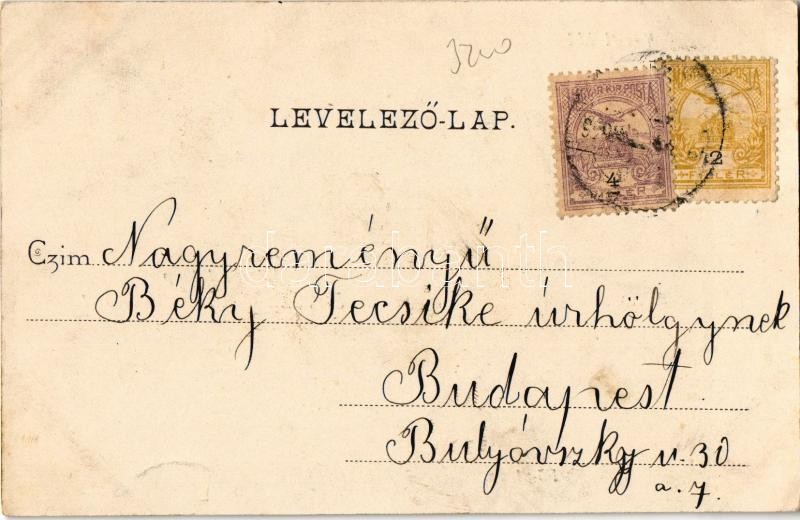 3200
LEVELEZŐ-LAP.
MAGYAR KIR. POSTA
4
FILLÉR
2
FILLÉR
Czim Nagyreményű
Béky Tecsike úrhölgynek
Budapest
Bulyóvszky u. 30
a. 7.
darabanth